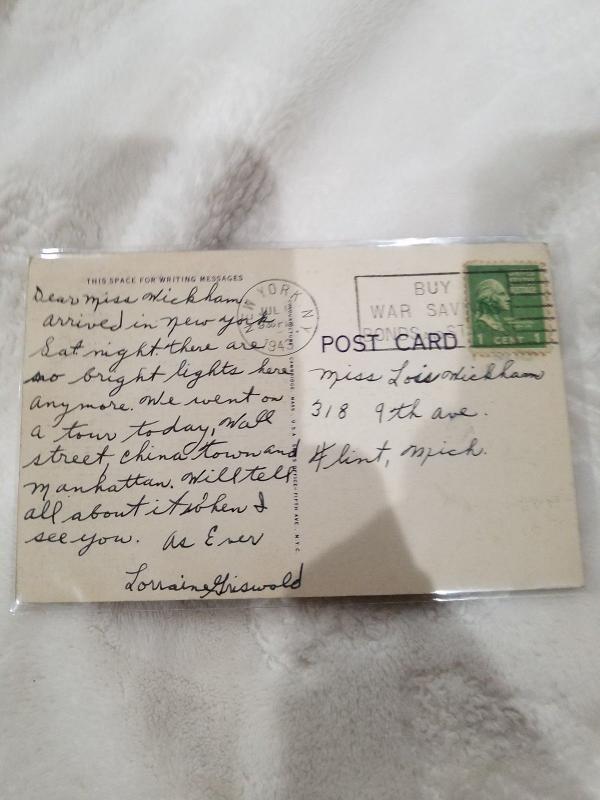 THIS SPACE FOR WRITING MESSAGES
Dear Miss Wickham
arrived in new york
Sat night. there are
no bright lights here
anymore. We went on
a tour today, Wall
street, china town and
manhattan. Will tell
all about it when I
see you. As Ever
Lorraine Griswold
NEW YORK, N.Y.
JUL
1943
CAMBRIDGE, MASS., U.S.A.
OFFICE-FIFTH AVE., N.Y.C.
BUY
WAR SAV
BONDS
1 CENT 1
POST CARD
Miss Lois Wickham
318 9th ave.
Flint, Mich.